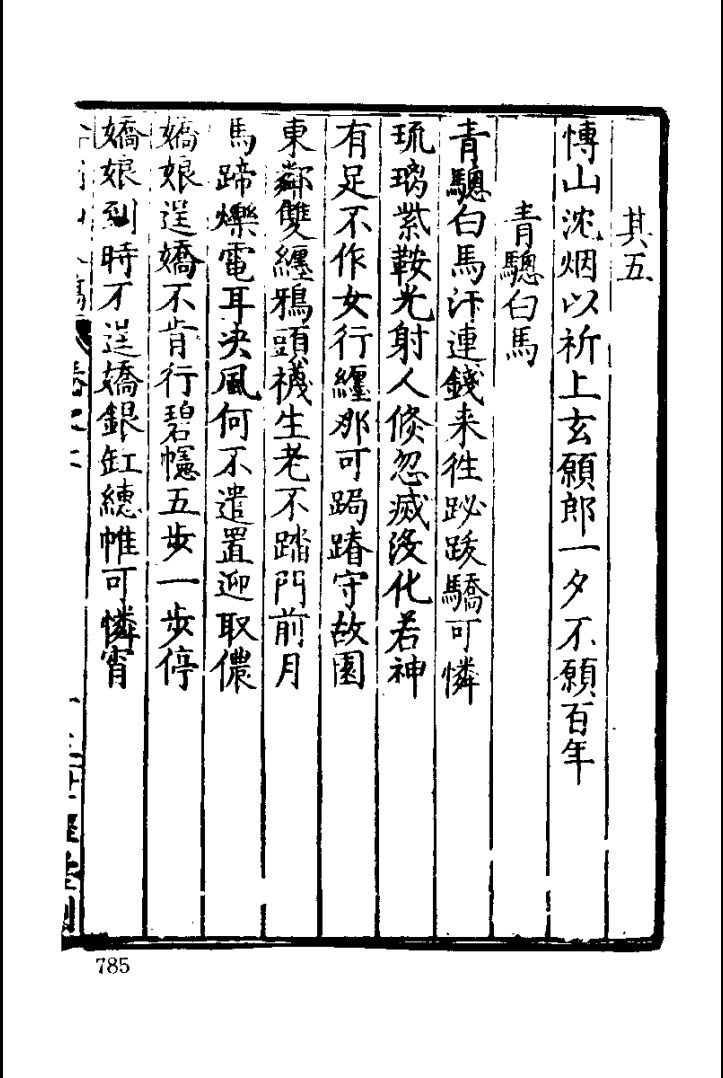 其五
慱山沈烟以祈上玄願郎一夕不願百年
青驄白馬
青驄白馬汗連錢来徃跐跋驕可憐
琉璃紫鞍光射人倐忽滅沒化若神
有足不作女行纏那可跼蹐守故園
東鄰雙纏鴉頭襪生老不踏門前月
馬蹄爍電耳决風何不遣置迎取儂
嬌娘逞嬌不肯行碧幰五步一步停
嬌娘到時不逞嬌銀缸繐帷可憐宵
世經堂刻
785